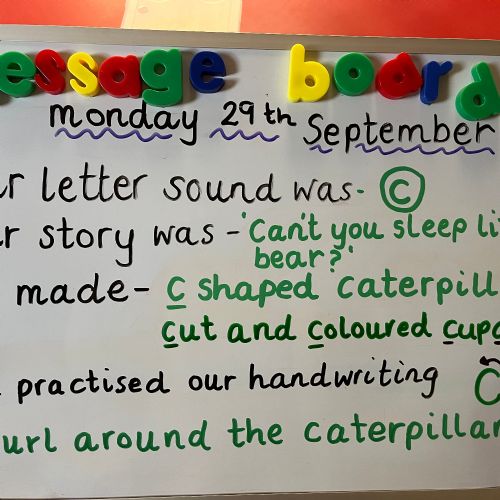 essage board
monday 29th September
r letter sound was - c
r story was - 'Can't you sleep li
bear?'
made - c shaped caterpill
cut and coloured cup
practised our handwriting c
url around the caterpillar